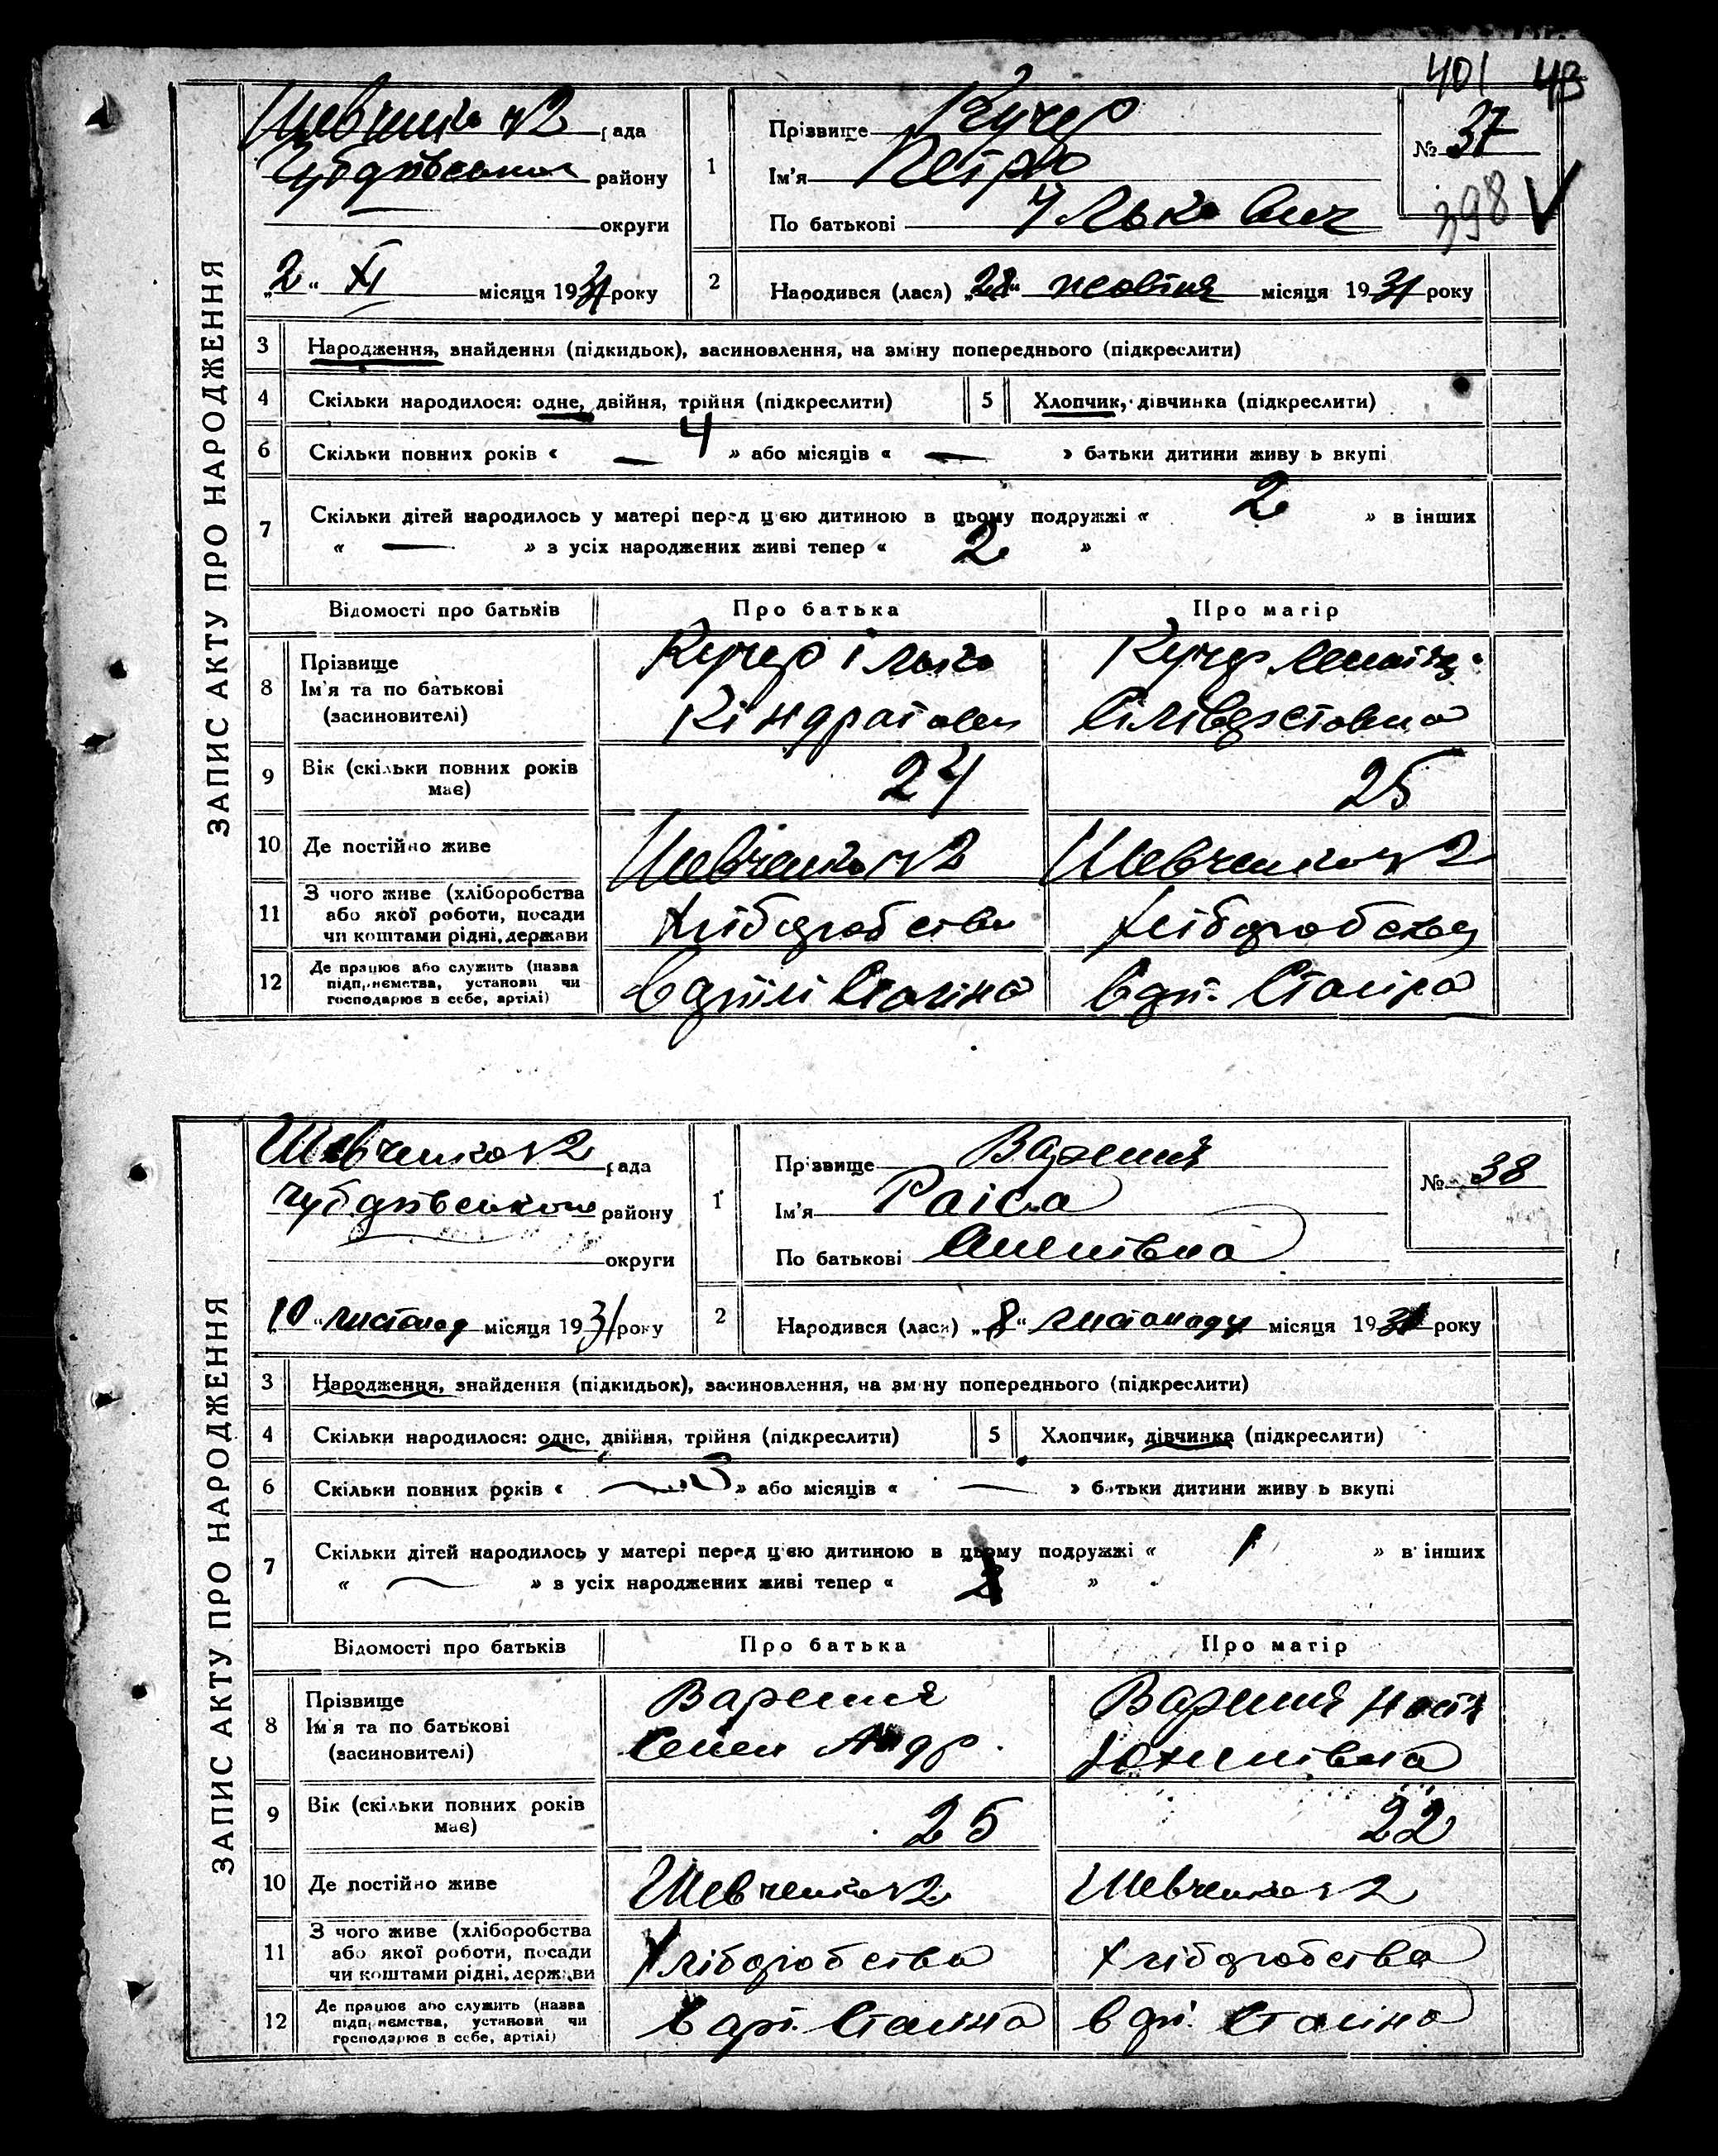 401 43
ЗАПИС АКТУ ПРО НАРОДЖЕННЯ
Шевченко №2 рада
Чубарівського району
округи
„2“ XI місяця 1931 року
1
Прізвище Кучер
Ім'я Петро
По батькові Ількович
№ 37
398 V
2
Народився (лася) „28“ жовтня місяця 1931 року
3 Народження, знайдення (підкидьок), засиновлення, на зміну попереднього (підкреслити)
4 Скільки народилося: одне, двійня, трійня (підкреслити) 5 Хлопчик, дівчинка (підкреслити)
6 Скільки повних років « — 4 » або місяців « — » батьки дитини живу ь вкупі
7 Скільки дітей народилось у матері перед цією дитиною в цьому подружжі « 2 » в інших
« — » з усіх народжених живі тепер « 2 »
Відомості про батьків Про батька Про матір
8 Прізвище
Ім'я та по батькові
(засиновителі)
Кучер Ілько
Кіндратович
Кучер
Сілверстовна
9 Вік (скільки повних років
має)
24 25
10 Де постійно живе Шевченко №2 Шевченко №2
11 З чого живе (хліборобства
або якої роботи, посади
чи коштами рідні, держави
хліборобства
12 Де працює або служить (назва
підприємства, установи чи
господарює в себе, артілі)
в артілі Сталіна в арт. Сталіна
ЗАПИС АКТУ ПРО НАРОДЖЕННЯ
Шевченко №2 рада
Чубарівського району
округи
„10“ листопад місяця 1931 року
1
Прізвище Вареник
Ім'я Раіса
По батькові Семенівна
№ 38
2
Народився (лася) „8“ листопаду місяця 1931 року
3 Народження, знайдення (підкидьок), засиновлення, на зміну попереднього (підкреслити)
4 Скільки народилося: одне, двійня, трійня (підкреслити) 5 Хлопчик, дівчинка (підкреслити)
6 Скільки повних років « 3 » або місяців « — » батьки дитини живу ь вкупі
7 Скільки дітей народилось у матері перед цією дитиною в цьому подружжі « 1 » в інших
« — » з усіх народжених живі тепер « »
Відомості про батьків Про батька Про матір
8 Прізвище
Ім'я та по батькові
(засиновителі)
Вареник
Семен Андр.
Вареник Настя
9 Вік (скільки повних років
має)
25 22
10 Де постійно живе Шевченко №2 Шевченко №2
11 З чого живе (хліборобства
або якої роботи, посади
чи коштами рідні, держави
хліборобства хліборобства
12 Де працює або служить (назва
підприємства, установи чи
господарює в себе, артілі)
в арт. Сталіна в арт. Сталіна